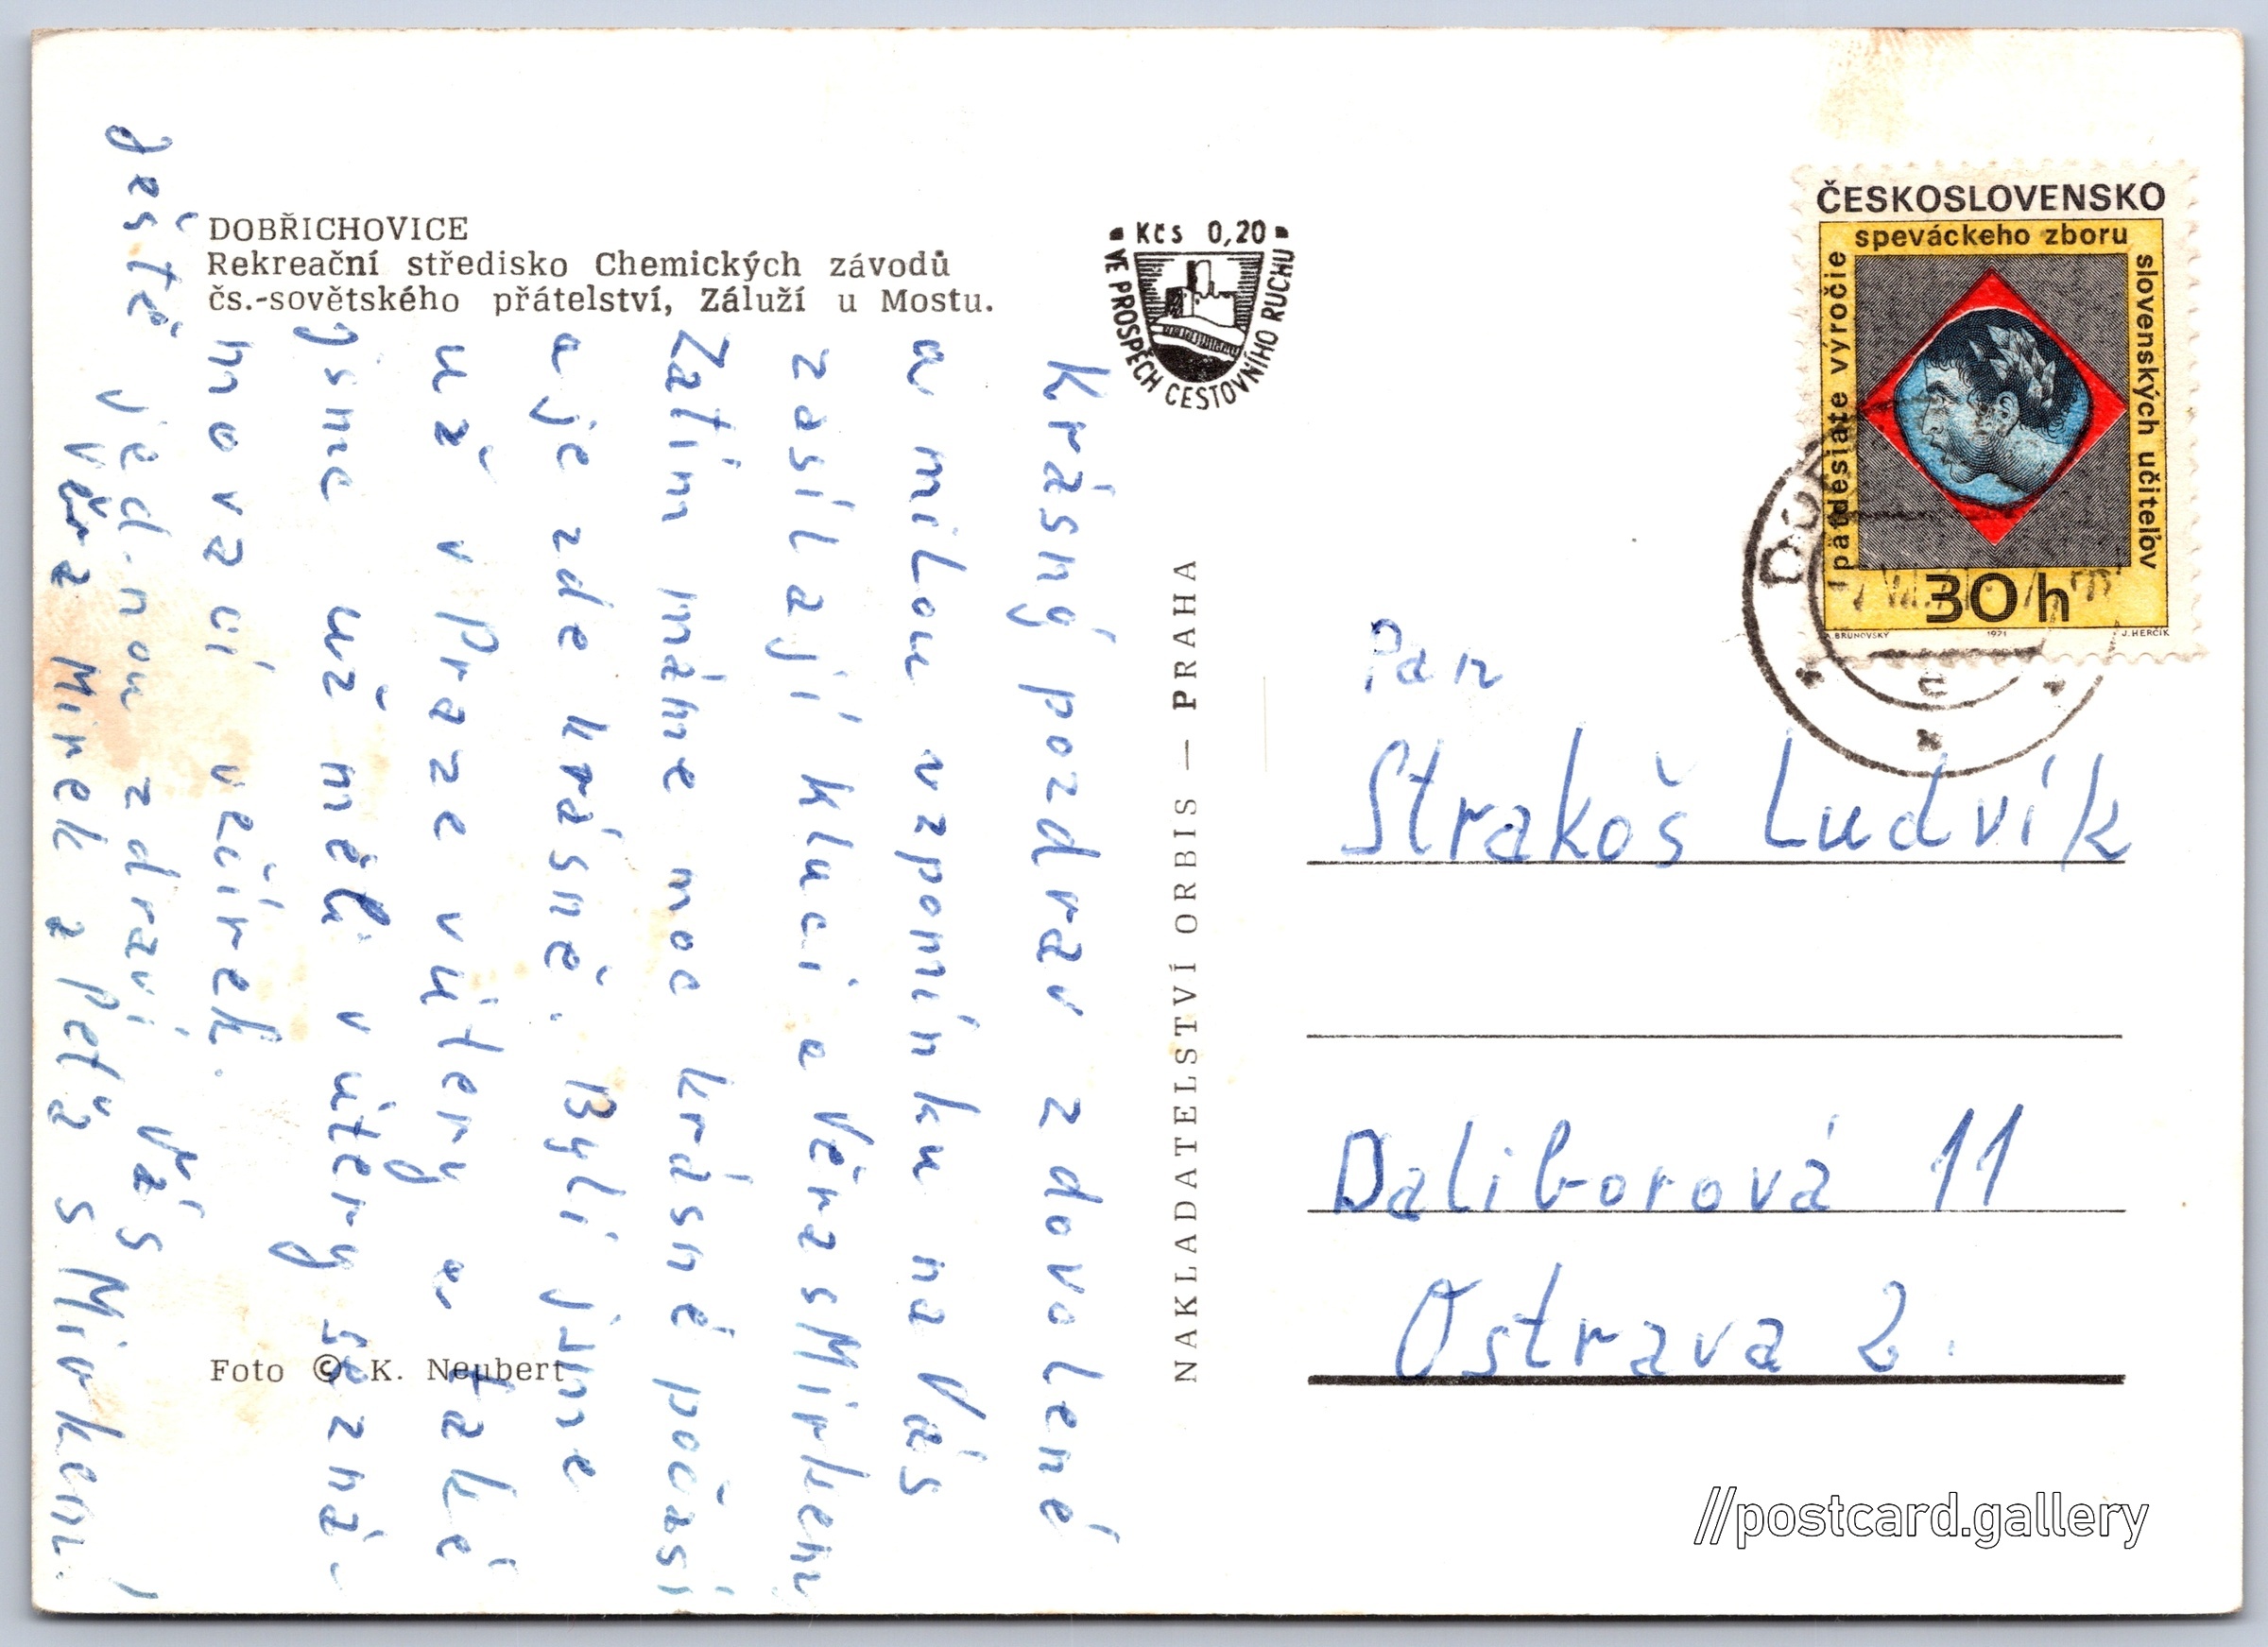 DOBŘICHOVICE
Rekreační středisko Chemických závodů
čs.-sovětského přátelství, Záluží u Mostu.
Krásný pozdrav z dovolené
a milou vzpomínku na Vás
zasílají kluci a Věra s Mirkem
Zatím máme moc krásné počasí
a je zde krásně. Byli jsme
už v Praze v úterý a také
jsme už měli v úterý sezna-
movací večírek.
Ještě jednou zdraví Vás
Věra Mirek a Peťa s Mirkem!
Foto © K. Neubert
Kčs 0,20
VE PROSPĚCH CESTOVNÍHO RUCHU
NAKLADATELSTVÍ ORBIS — PRAHA
ČESKOSLOVENSKO
päťdesiate výročie
speváckeho zboru
slovenských učiteľov
30 h
A. BRUNOVSKÝ 1971 J. HERČÍK
Pan
Strakoš Ludvík
Daliborová 11
Ostrava 2.
//postcard.gallery